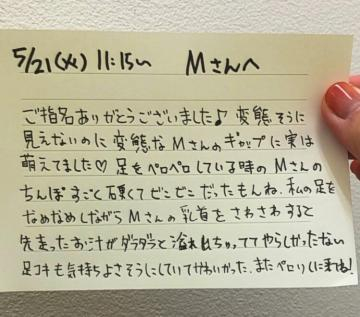 5/21(火) 11:15〜 Mさんへ
ご指名ありがとうございました♪ 変態そうに
見えないのに変態なMさんのギャップに実は
萌えてました♡ 足をペロペロしている時のMさんの
ちんぽすごく硬くてビンビンだったもんね、私の足を
なめなめしながらMさんの乳首をさわさわすると
先走ったお汁がダラダラと溢れちゃっててやらしかったなぁ
足コキも気持ちよさそうにしていてかわいかった。またペロりに来てね!